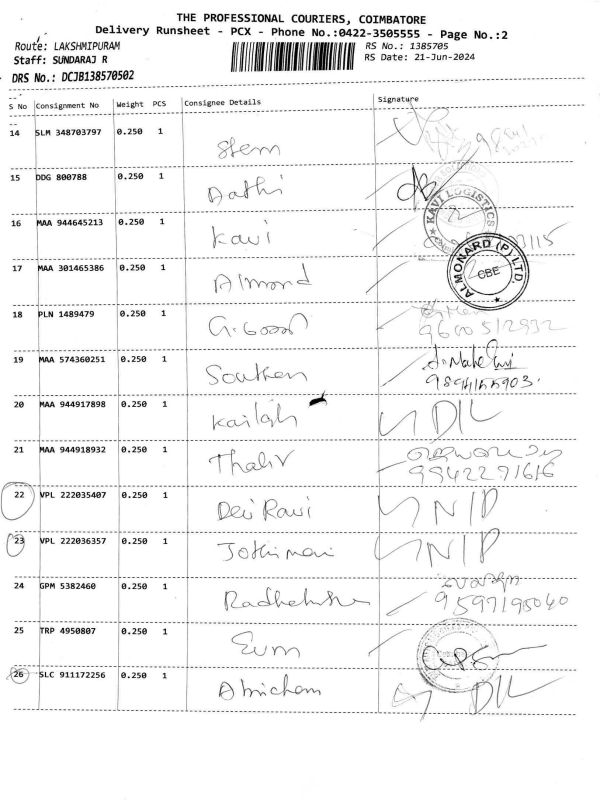 THE PROFESSIONAL COURIERS, COIMBATORE
Delivery Runsheet - PCX - Phone No.:0422-3505555 - Page No.:2
Route: LAKSHMIPURAM RS No.: 1385705
Staff: SUNDARAJ R RS Date: 21-Jun-2024
DRS No.: DCJB138570502
S No Consignment No Weight PCS Consignee Details Signature
14 SLM 348703797 0.250 1 Stem
15 DDG 800788 0.250 1 Aathi
KAVI LOGISTICS
16 MAA 944645213 0.250 1 Kavi
17 MAA 301465386 0.250 1 Almond
ALMONARD (P) LTD.
CBE
18 PLN 1489479 0.250 1
9600512932
19 MAA 574360251 0.250 1 Southern
20 MAA 944917898 0.250 1 Kailash D/L
21 MAA 944918932 0.250 1 Thalir
9942271616
22 VPL 222035407 0.250 1 Devi Ravi N/P
23 VPL 222036357 0.250 1 Jothimani N/P
24 GPM 5382460 0.250 1
9597195040
25 TRP 4950807 0.250 1
26 SLC 911172256 0.250 1 D/L